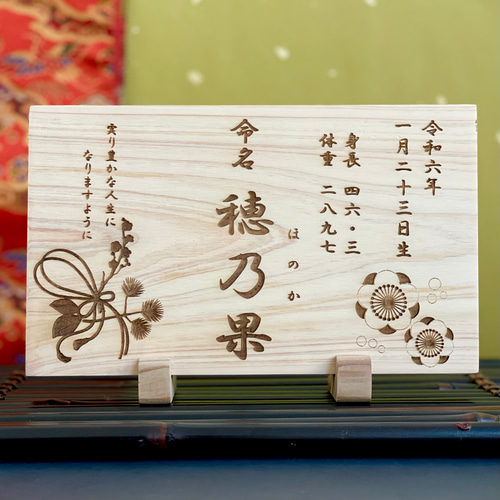 令和六年
一月二十三日生
身長 四六・三
体重 二八九七
命名 穂乃果
ほのか
実り豊かな人生に
なりますように